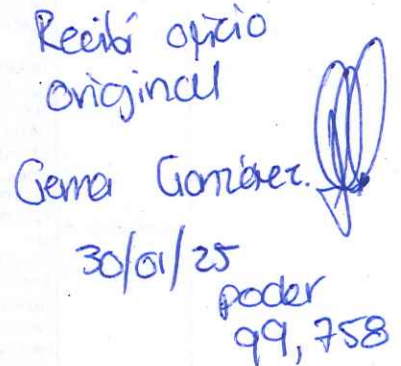 Recibí oficio
original
Gema González.
30/01/25
poder
99,758